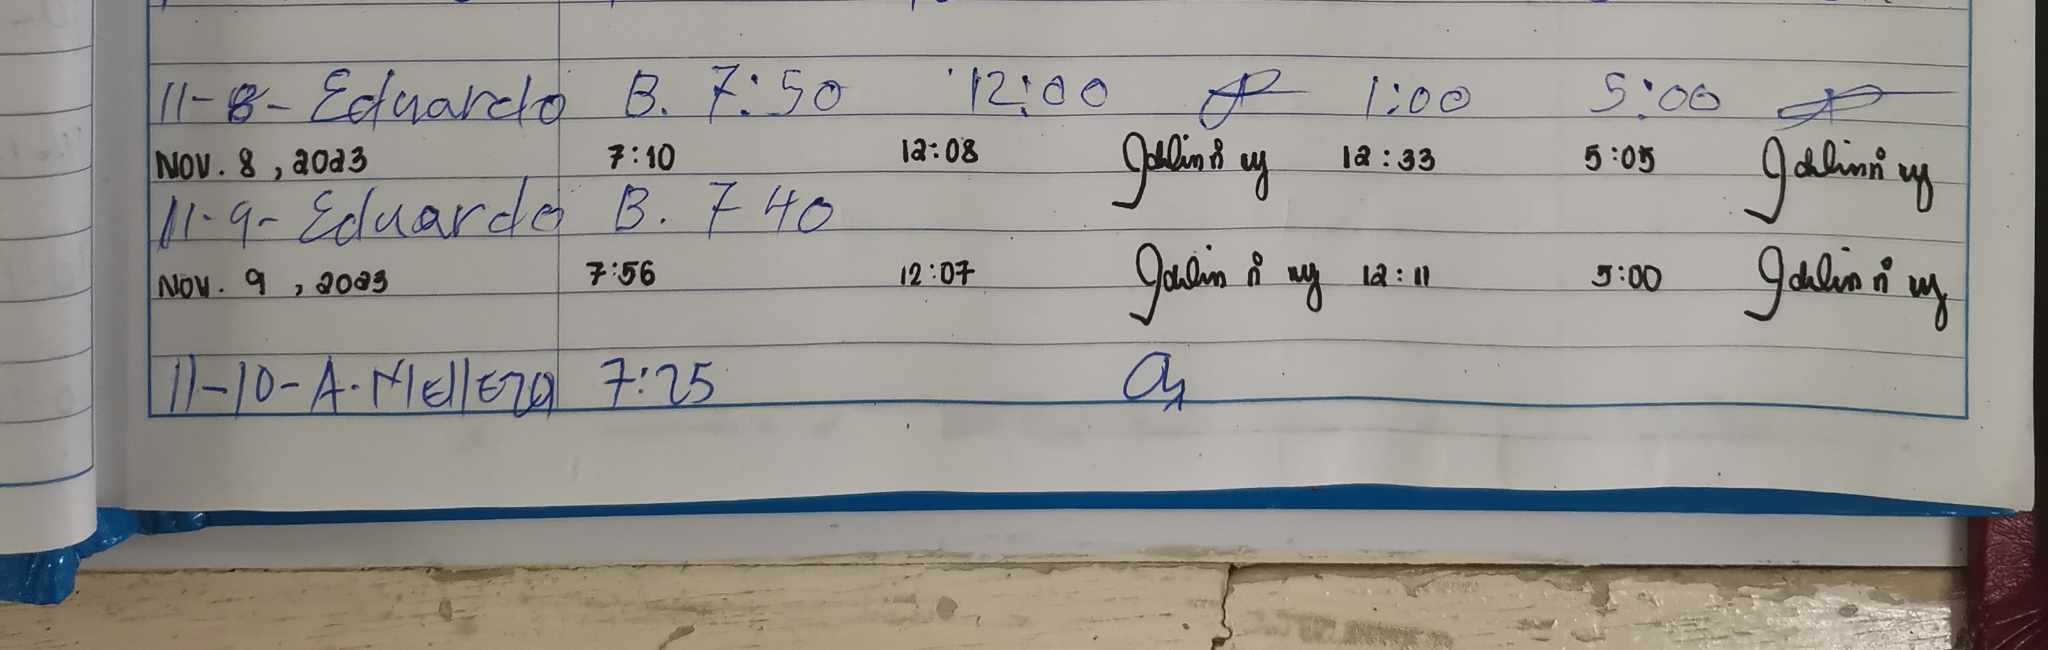 11-8- Eduardo B. 7:50 12:00 1:00 5:00
Nov. 8, 2023 7:10 12:08 12:33 5:05
11-9- Eduardo B. 7 40
Nov. 9, 2023 7:56 12:07 12:11 5:00
11-10- A. Melleza 7:25